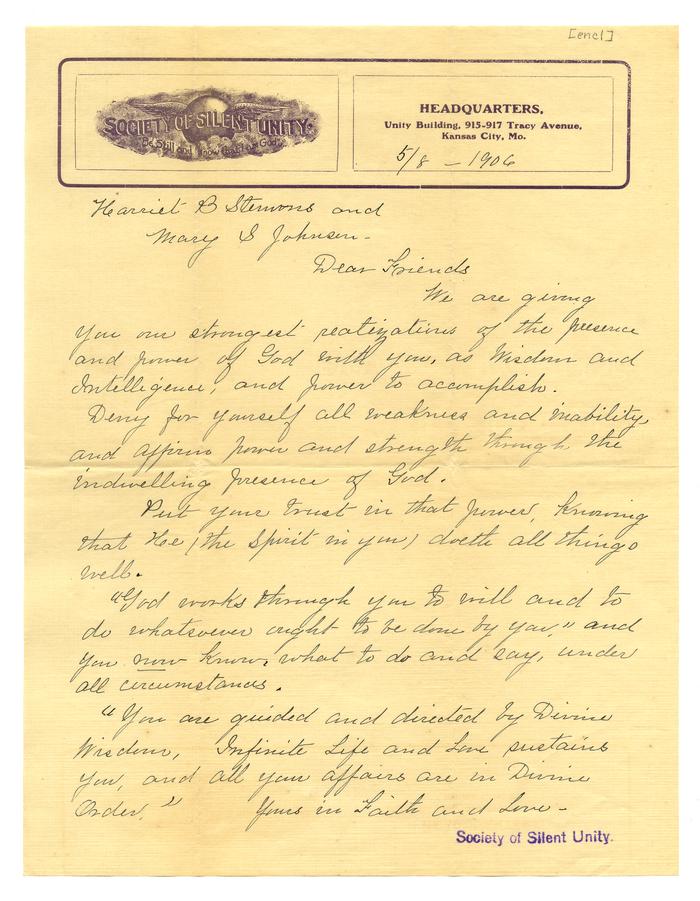 [encl]
SOCIETY OF SILENT UNITY.
Be Still and Know that I am God.
HEADQUARTERS,
Unity Building, 915-917 Tracy Avenue,
Kansas City, Mo.
5/8 - 1906
Harriet B Stemons and
Mary S Johnson -
Dear Friends
We are giving
you our strongest realizations of the presence
and power of God with you, as Wisdom and
Intelligence, and power to accomplish.
Deny for yourself all weakness and inability,
and affirm power and strength through the
indwelling presence of God.
Put your trust in that power, knowing
that He (the Spirit in you) doeth all things
well.
"God works through you to will and to
do whatsoever ought to be done by you," and
you now know, what to do and say, under
all circumstances.
"You are guided and directed by Divine
Wisdom, Infinite Life and Love sustains
you, and all your affairs are in Divine
Order."     Yours in Faith and Love -
Society of Silent Unity.